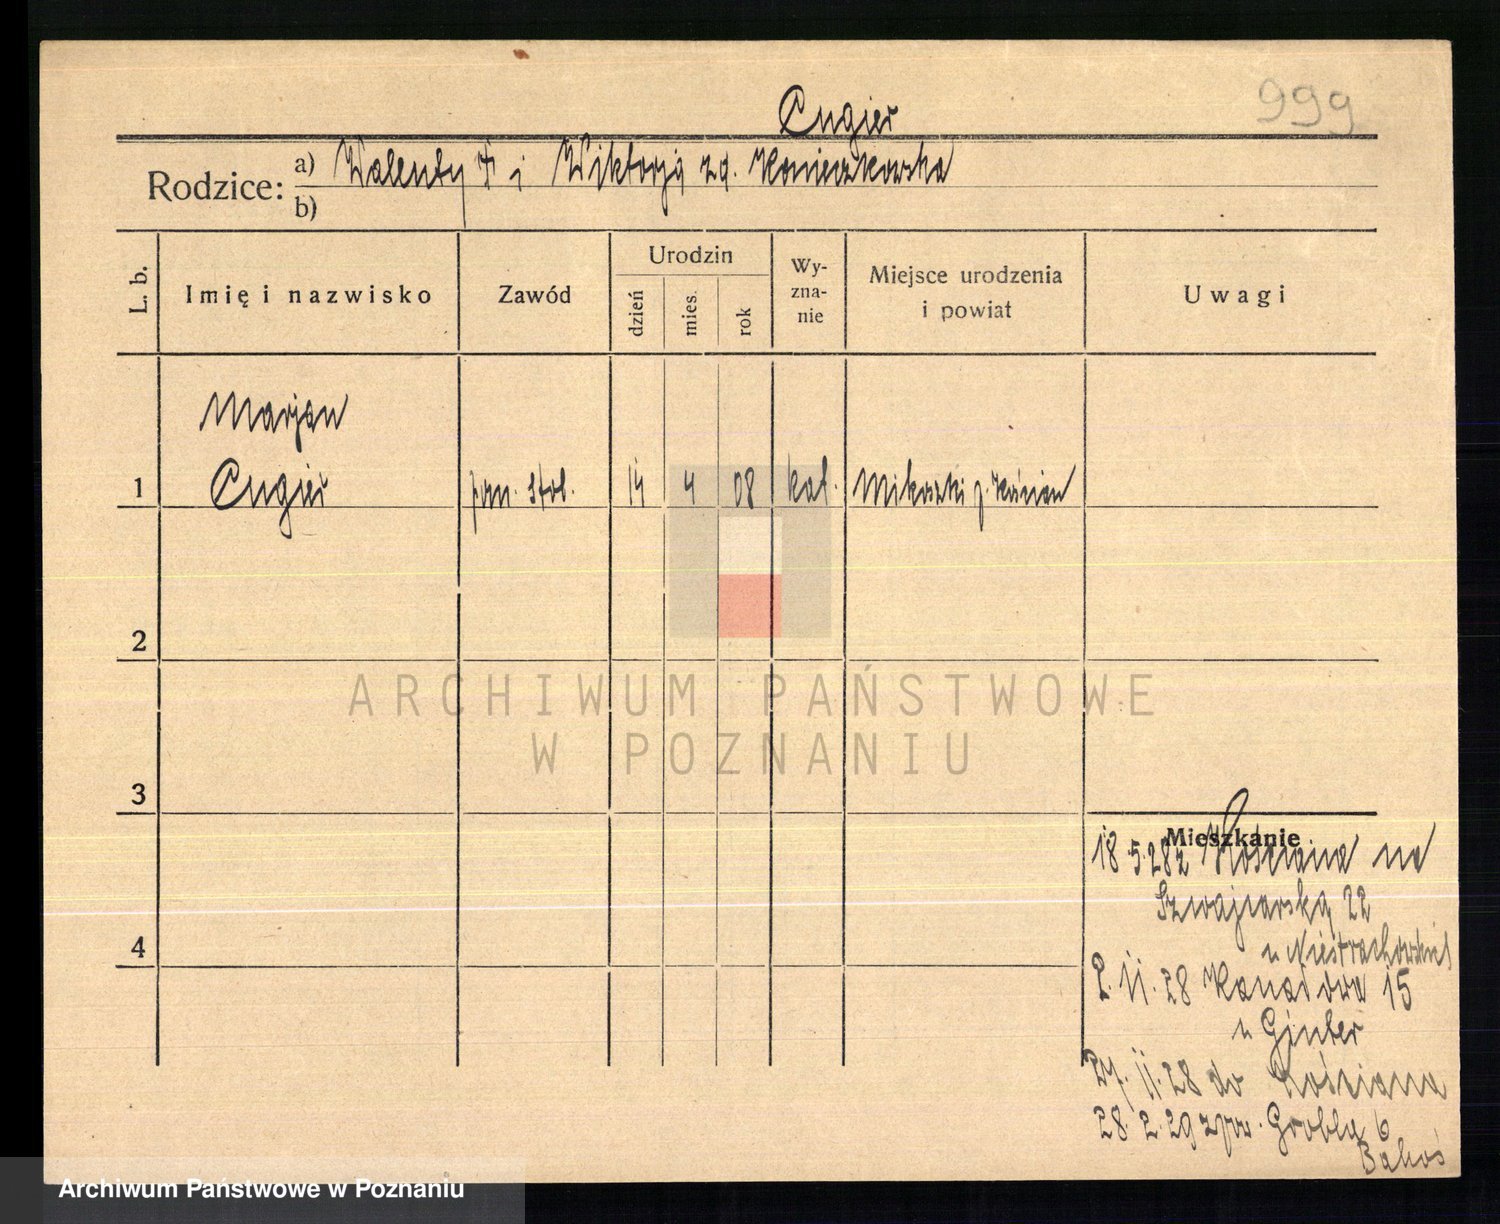 999
Cugier
Rodzice: a) Walenty † i Wiktorja zd. Konieczkowska
b)
L. b. Imię i nazwisko Zawód Urodzin dzień mies. rok Wy-zna-nie Miejsce urodzenia i powiat Uwagi
Marjan
1 Cugier pom. stol. 14 4 08 kat. Mikoszki p. Kościan
2
3
4
Mieszkanie
18.5.28 z Kościana na
Szwajcarską 22
u Niestrachowski
2.11.28 Kanałowa 15
u Ginter
27.11.28 do Kościana
28.2.29 zpow. Grobla 6
ARCHIWUM PAŃSTWOWE
W POZNANIU
Archiwum Państwowe w Poznaniu